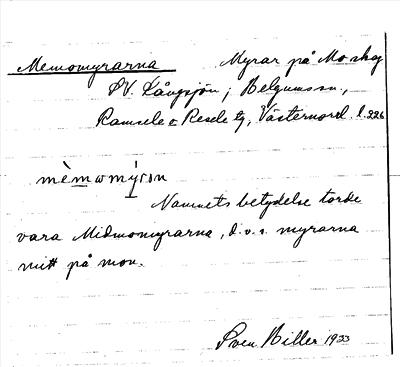 Memomyrarna Myrar på Moskog
SV. Långsjön, Helgumssn.,
Ramsele o Resele tg, Västernorrl. l. 226
mèmωmýrɩn
Namnets betydelse torde
vara Midmomyrarna, d.v.s. myrarna
mitt på mon.
Sven Hiller 1933